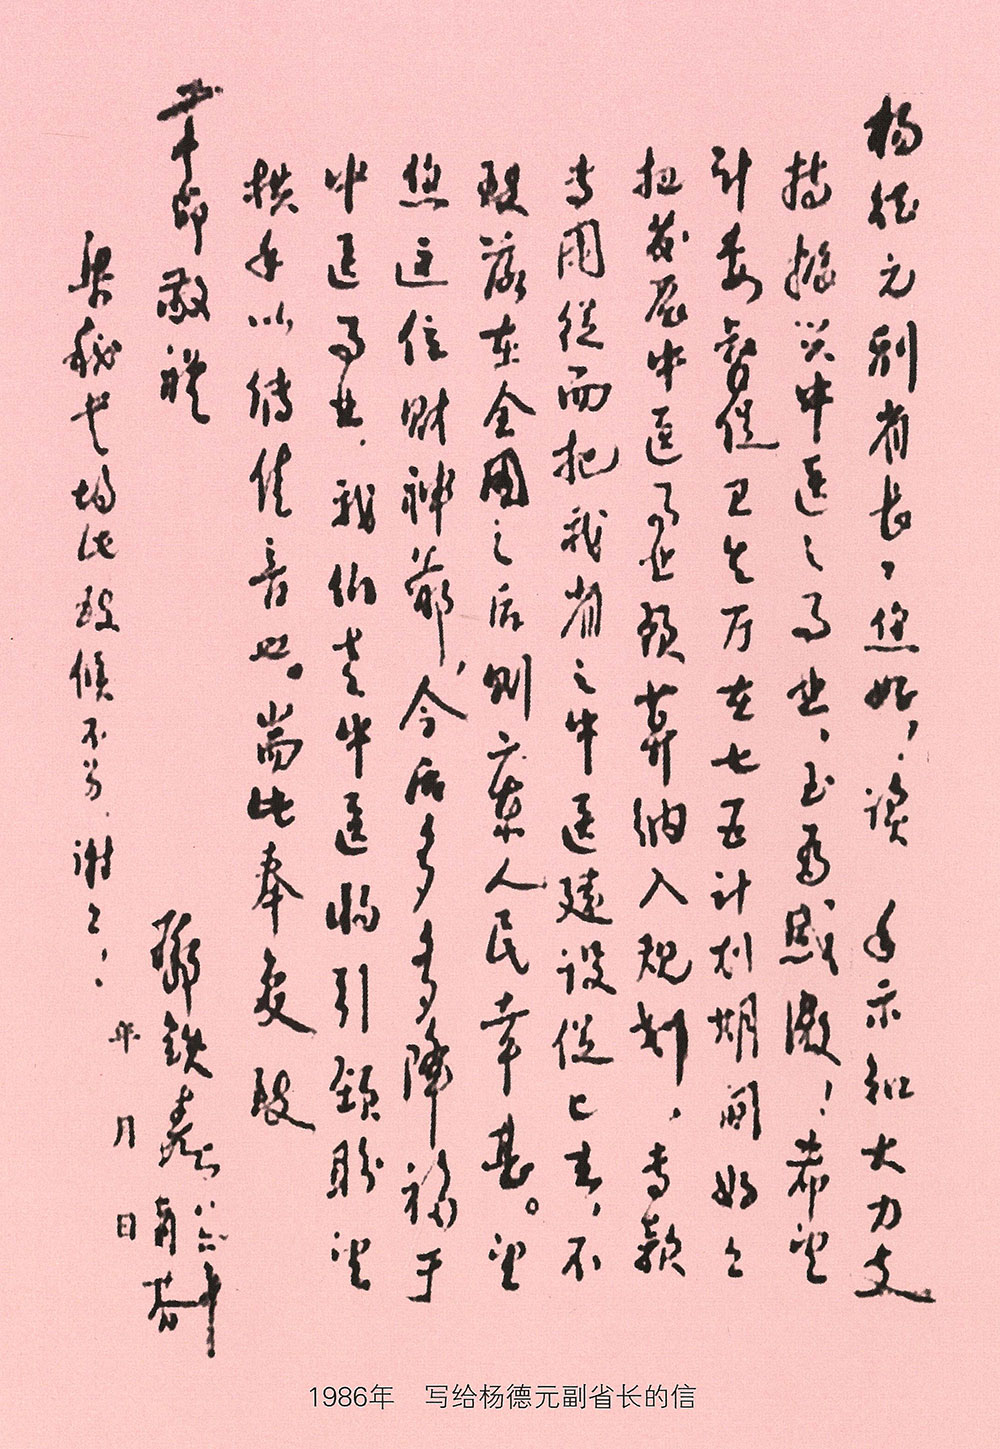 杨德元副省长，您好！谈 手示和大力支
持振兴中医之事业，至为感激！希望
计委督促卫生厅在七五计划期间好之
把发展中医事业预算纳入规划，专款
专用从而把我省之中医建设促上去，不
致落在全国之后则广东人民幸甚。望
您这位财神爷，今后多多降福于
中医事业，我们老中医将引颈盼望
拱手以待佳音也。耑此奉复 致
革命敬礼
邓铁涛
八六年
年 月 日
梁秘书均此致候不另，谢之！
1986年 写给杨德元副省长的信